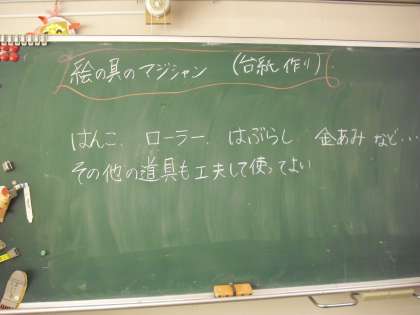 絵の具のマジシャン (台紙作り)
はんこ、ローラー、はぶらし 金あみ など…
その他の道具も工夫して使ってよい